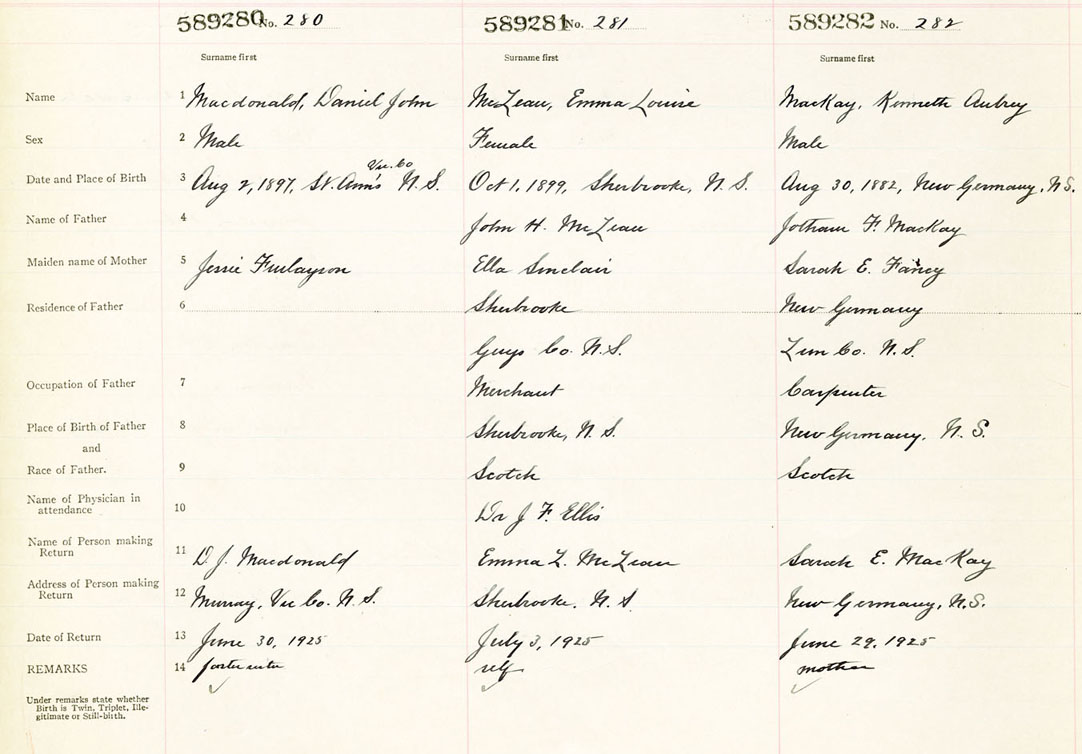 589280 No. 280 589281 No. 281 589282 No. 282
Surname first Surname first Surname first
Name 1 Macdonald, Daniel John McLean, Emma Louise MacKay, Kenneth Aubrey
Sex 2 Male Female Male
Vic. Co
Date and Place of Birth 3 Aug 2, 1897, St. Ann's N.S. Oct 1, 1899, Sherbrooke, N.S. Aug 30, 1882, New Germany, N.S.
Name of Father 4 John H. McLean Jotham F. MacKay
Maiden name of Mother 5 Jessie Finlayson Ella Sinclair Sarah E. Fancy
Residence of Father 6 Sherbrooke New Germany
Guys Co. N.S. Lun Co. N.S.
Occupation of Father 7 Merchant Carpenter
Place of Birth of Father 8 Sherbrooke, N.S. New Germany, N.S.
and
Race of Father. 9 Scotch Scotch
Name of Physician in
attendance 10 Dr J. F. Ellis
Name of Person making
Return 11 D. J. Macdonald Emma L. McLean Sarah E. MacKay
Address of Person making
Return 12 Murray, Vic Co. N.S. Sherbrooke, N.S. New Germany, N.S.
Date of Return 13 June 30, 1925 July 3, 1925 June 29, 1925
REMARKS 14 self mother
Under remarks state whether
Birth is Twin, Triplet, Ille-
gitimate or Still-birth.